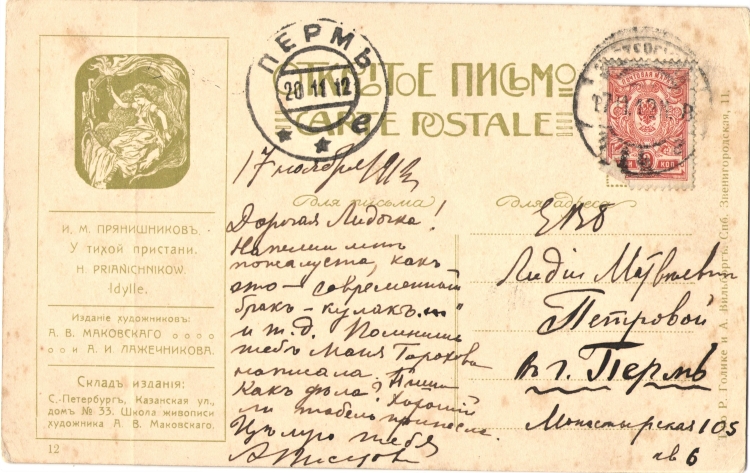 ОТКРЫТОЕ ПИСЬМО
CARTE POSTALE
ПЕРМЬ
20 11 12
е
ПОЧТОВАЯ МАРКА
КОП
И. М. ПРЯНИШНИКОВЪ.
У ТИХОЙ ПРИСТАНИ.
N. PRIANICHNIKOW.
Idylle.
Изданіе художниковъ:
А. В. МАКОВСКАГО
и А. И. ЛАЖЕЧНИКОВА.
Складъ изданія:
С.-Петербургъ, Казанская ул.,
домъ № 33. Школа живописи
художника А. В. Маковскаго.
12
17 ноября 1912
Для письма
Дорогая Лидочка!
Напиши мнѣ
пожалуста, какъ
это – „современный
бракъ – кулакъ"
и т. д. Помнишь
тебѣ Маня Торохова
написала. Пиши
Какъ дѣла?
Хорошій
ли табель принесла.
Цѣлую тебя
Для адреса
ЕВБ
Лидіи Матвѣевнѣ
Петровой
въ г. Пермь
Монастырская 105
кв 6
Т-во Р. Голике и А. Вильборгъ. Спб. Звенигородская, 11.